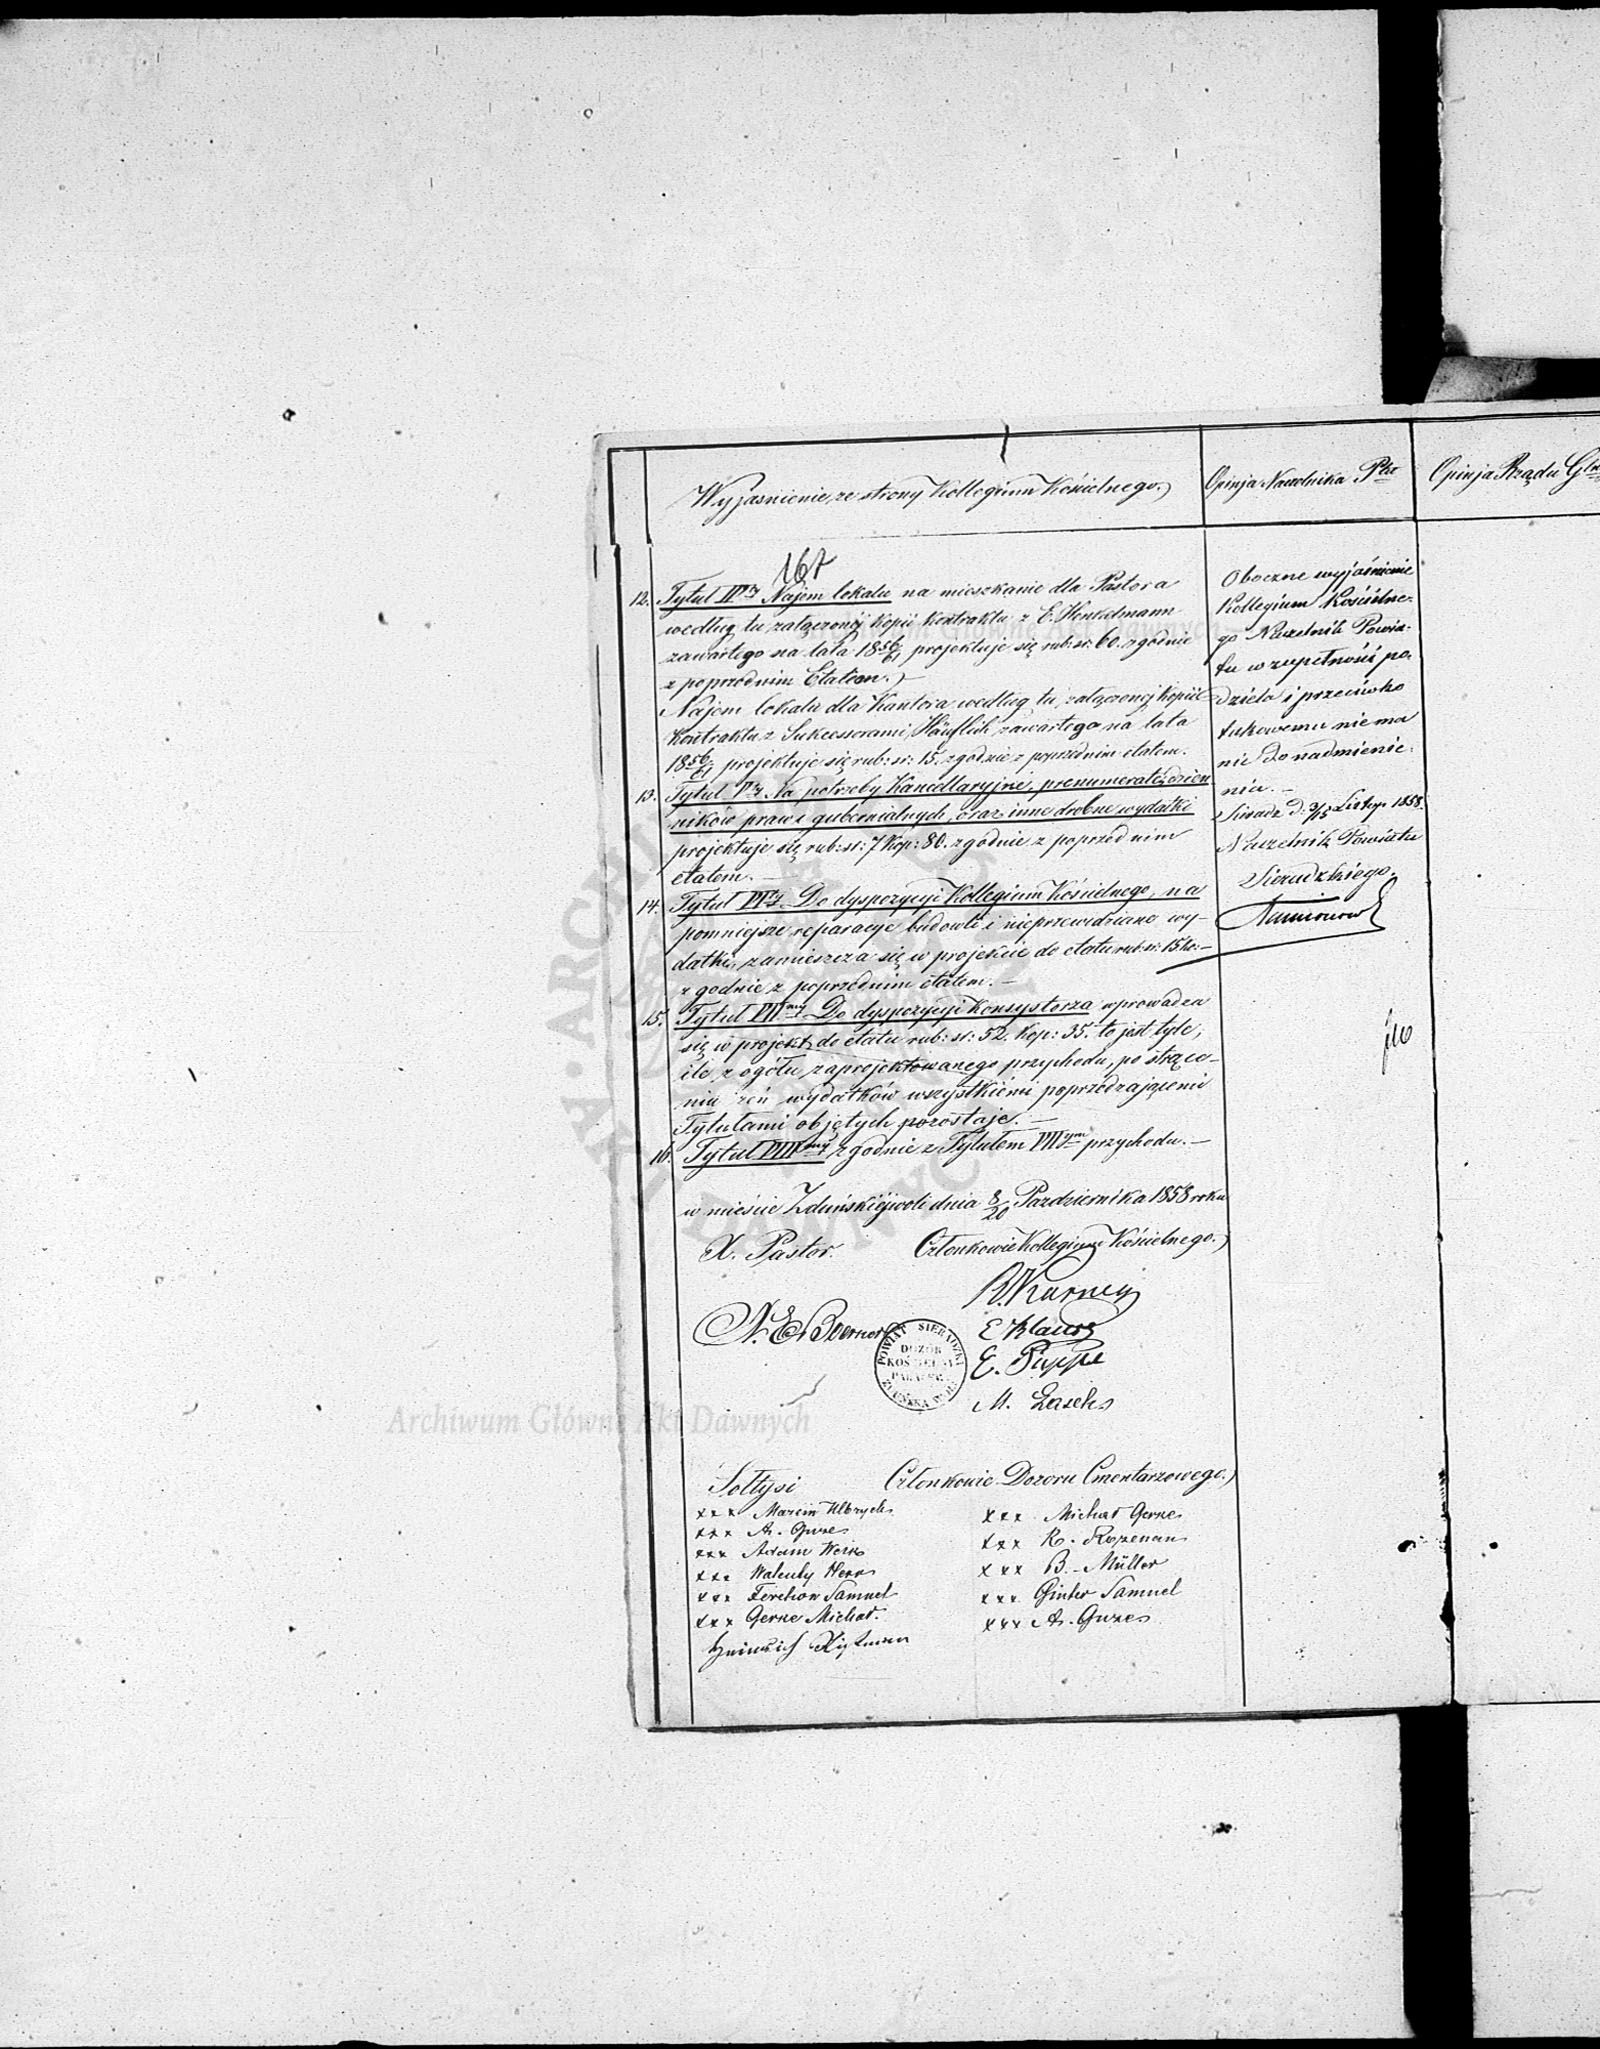 Wyjasnienie, ze strony Kollegium Kościelnego.
Opinja Naczelnika Ptu
Opinja Rządu
167
12. Tytuł Najem lokalu na mieszkanie dla Pastora
według tu załączonéj kopii kontraktu z E. Henkelmann
zawartego na lata 1856/61 projektuje się rub: sr: 60. zgodnie
z poprzednim Etatem.
Najem lokalu dla Kantora według tu załączonej kopii
Kontraktu z Sukcessorami zawartego na lata
1856/61 projektuje się rub: sr: 15. zgodnie z poprzednim etatem.
13. Tytuł Vty Na potrzeby Kancellaryjne, prenumeratę dzien
ników praw i gubernialnych, oraz inne drobne wydatki
projektuje się rub: sr: 7 Kop: 80. zgodnie z poprzednim
etatem. —
14. Tytuł VIty Do dyspozycyi Kollegium Kościelnego, na
pomniejsze reparacye budowli i nieprzewidziane wy-
datki, zamieszcza się w projekcie do etatu rub: sr: 15 ko: —
zgodnie z poprzednim etatem. —
15. Tytuł VIImy Do dyspozycyi Konsystorza wprowadza
się w projekt do etatu rub: sr: 52. kop: 35. to jest tyle,
ile z ogółu zaprojektowanego przychodu, po strące-
niu zeń wydatków wszystkiémi poprzedzającemi
Tytułami objętych pozostaje. —
16. Tytuł VIIImy zgodnie z Tytułem VIIIym przychodu. —
w mieście Zduńskiéjwoli dnia 8/20 Pazdziernika 1858 roku
X. Pastor.
Członkowie Kollegium Kościelnego.
N. E. Boerner
E Klauss
E. Puppe
M. Lasch
POWIAT SIERADZKI
DOZÓR
Sołtysi
Członkowie Dozoru Cmentarzowego.
xxx Marcin Ulbrych
xxx A. Gurze
xxx Adam Weiss
xxx Walenty Henn
xxx Samuel
xxx Gerke Michał.
Heinrich
xxx Michał Gerke
xxx R. Rozenau
xxx B. Müller
xxx Ginter Samuel
xxx A. Gurze
Oboczne wyjaśnienie
Kollegium Kościelne-
go Naczelnik Powia-
tu w zupełności po-
dziela i przeciwko
takowemu niema
nic do nadmienie-
nia. —
Sieradz d. 3/15 Listop: 1858.
Naczelnik Powiatu
Sieradzkiego.
Archiwum Główne Akt Dawnych